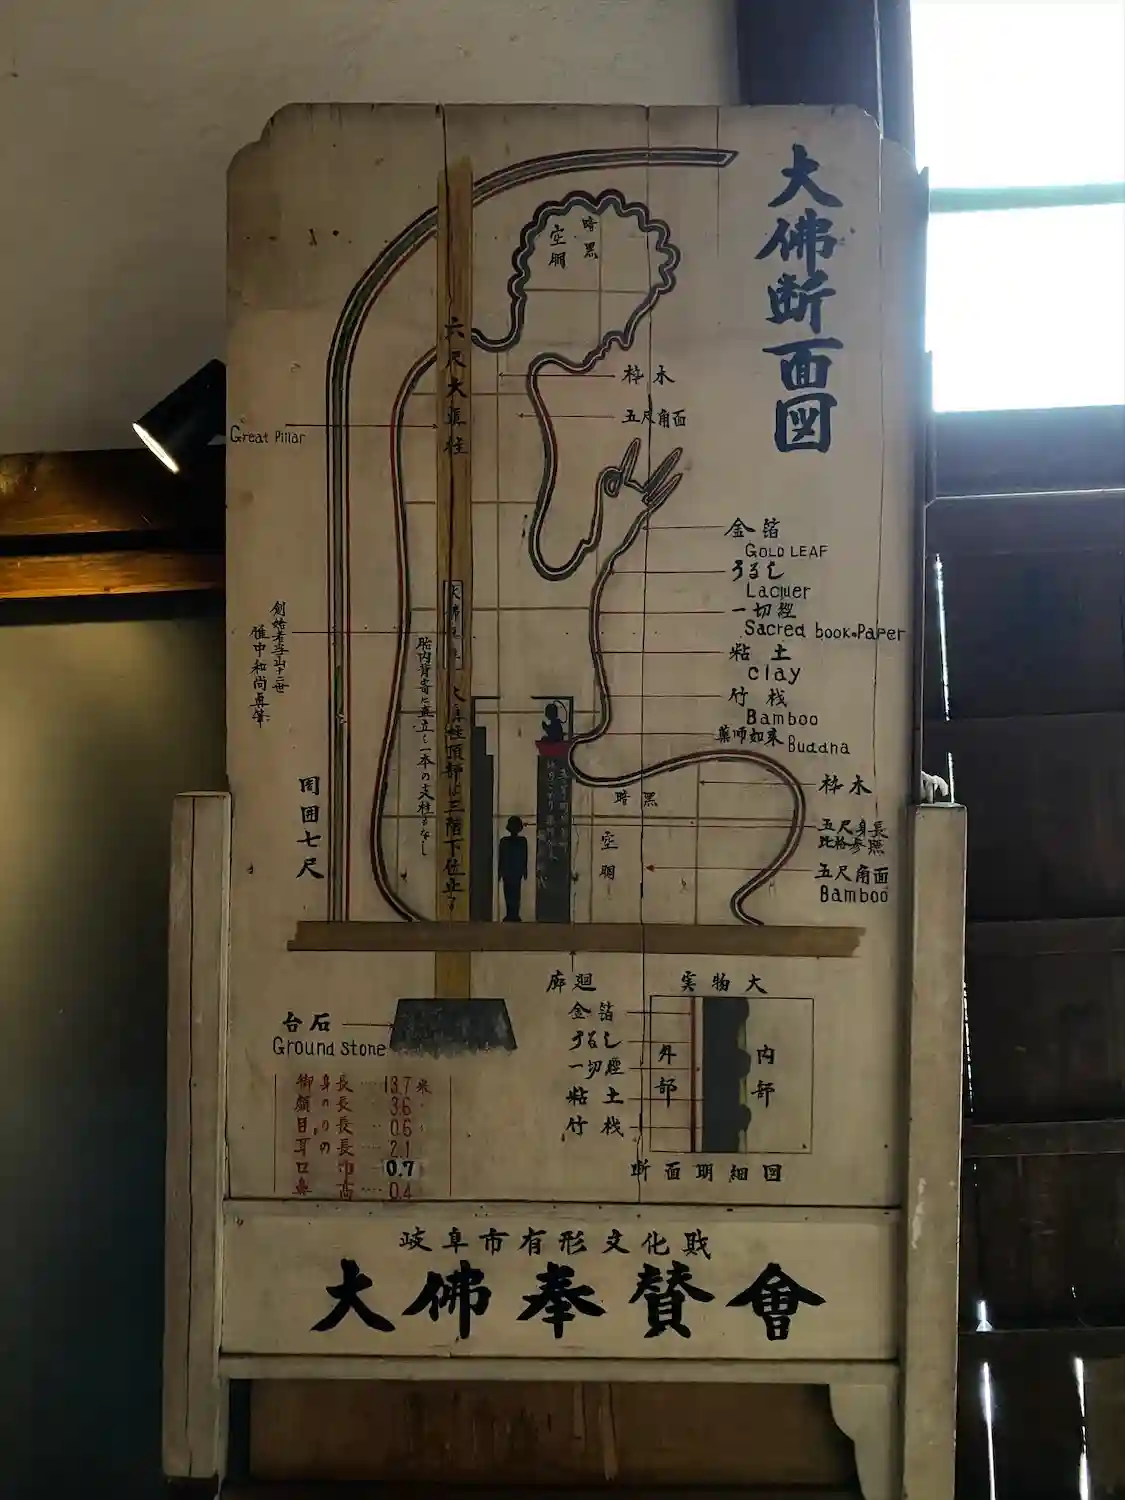 大佛断面図
暗黒
空胴
六尺大真柱
枠木
五尺角面
Great Pillar
金箔
GOLD LEAF
うるし
Lacquer
一切経
Sacred book・Paper
粘土
clay
竹桟
Bamboo
薬師如来 Buddha
創始者当山十二世
惟中和尚真筆
胎内背寄に直立し一本の支柱もなし
大真柱頂部は三階下仕立る
周囲七尺
暗黒
空胴
枠木
五尺身長
比格参照
五尺角面
Bamboo
廊廻
台石
Ground stone
実物大
金箔
うるし
一切経
粘土
竹桟
外部
内部
断面明細図
御身長‥‥13.7米
顔の長‥‥3.6
目の長‥‥0.6
耳の長‥‥2.1
口巾‥‥0.7
鼻高‥‥0.4
岐阜市有形文化財
大佛奉賛會